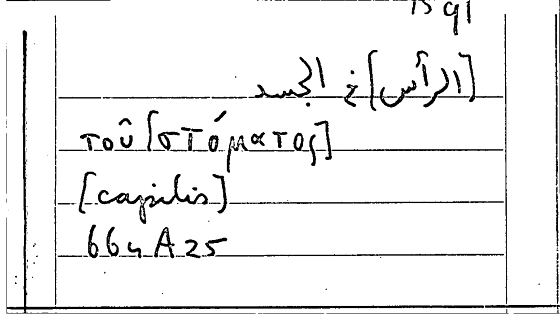 [الرأس] خ الجسد
τοῦ [στόματος]
[capitis]
664 A 25